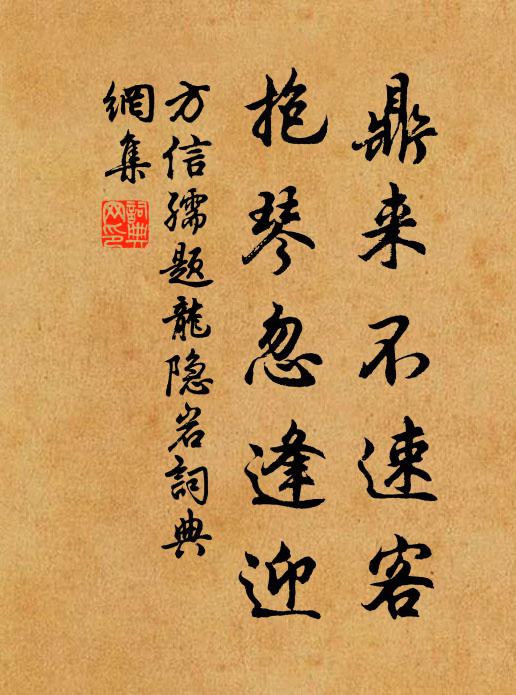 鼎来不速客
抱琴忽逢迎
方信孺题龍隐岩詞典
網集
詞典
网印